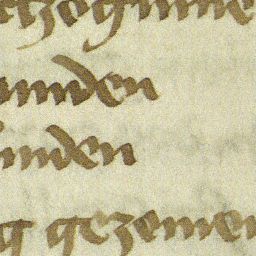 tzoginne
unden
unden
g gezemen